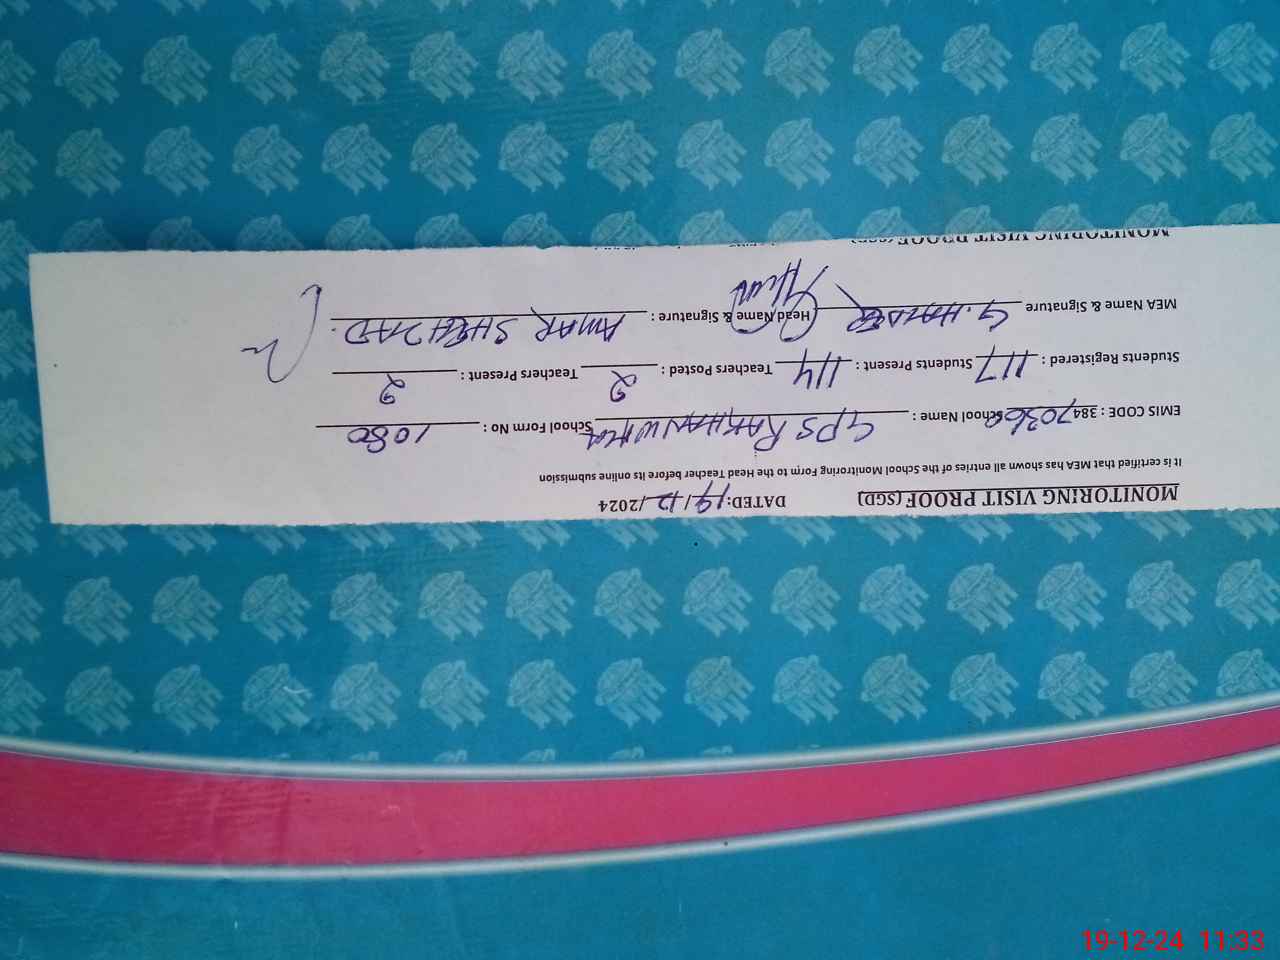 MONITORING VISIT PROOF (SGD) DATED: 19/12/2024
It is certified that MEA has shown all entries of the School Monitroring Form to the Head Teacher before its online submission
EMIS CODE : 384 70360 School Name : GPS RAKH School Form No : 1080
Students Registered : 117 Students Present : 114 Teachers Posted : 2 Teachers Present : 2
MEA Name & Signature G. HAIDER Head Name & Signature : AMAR SHEHZAD
MONITORING VISIT PROOF (SGD)
19-12-24 11:33